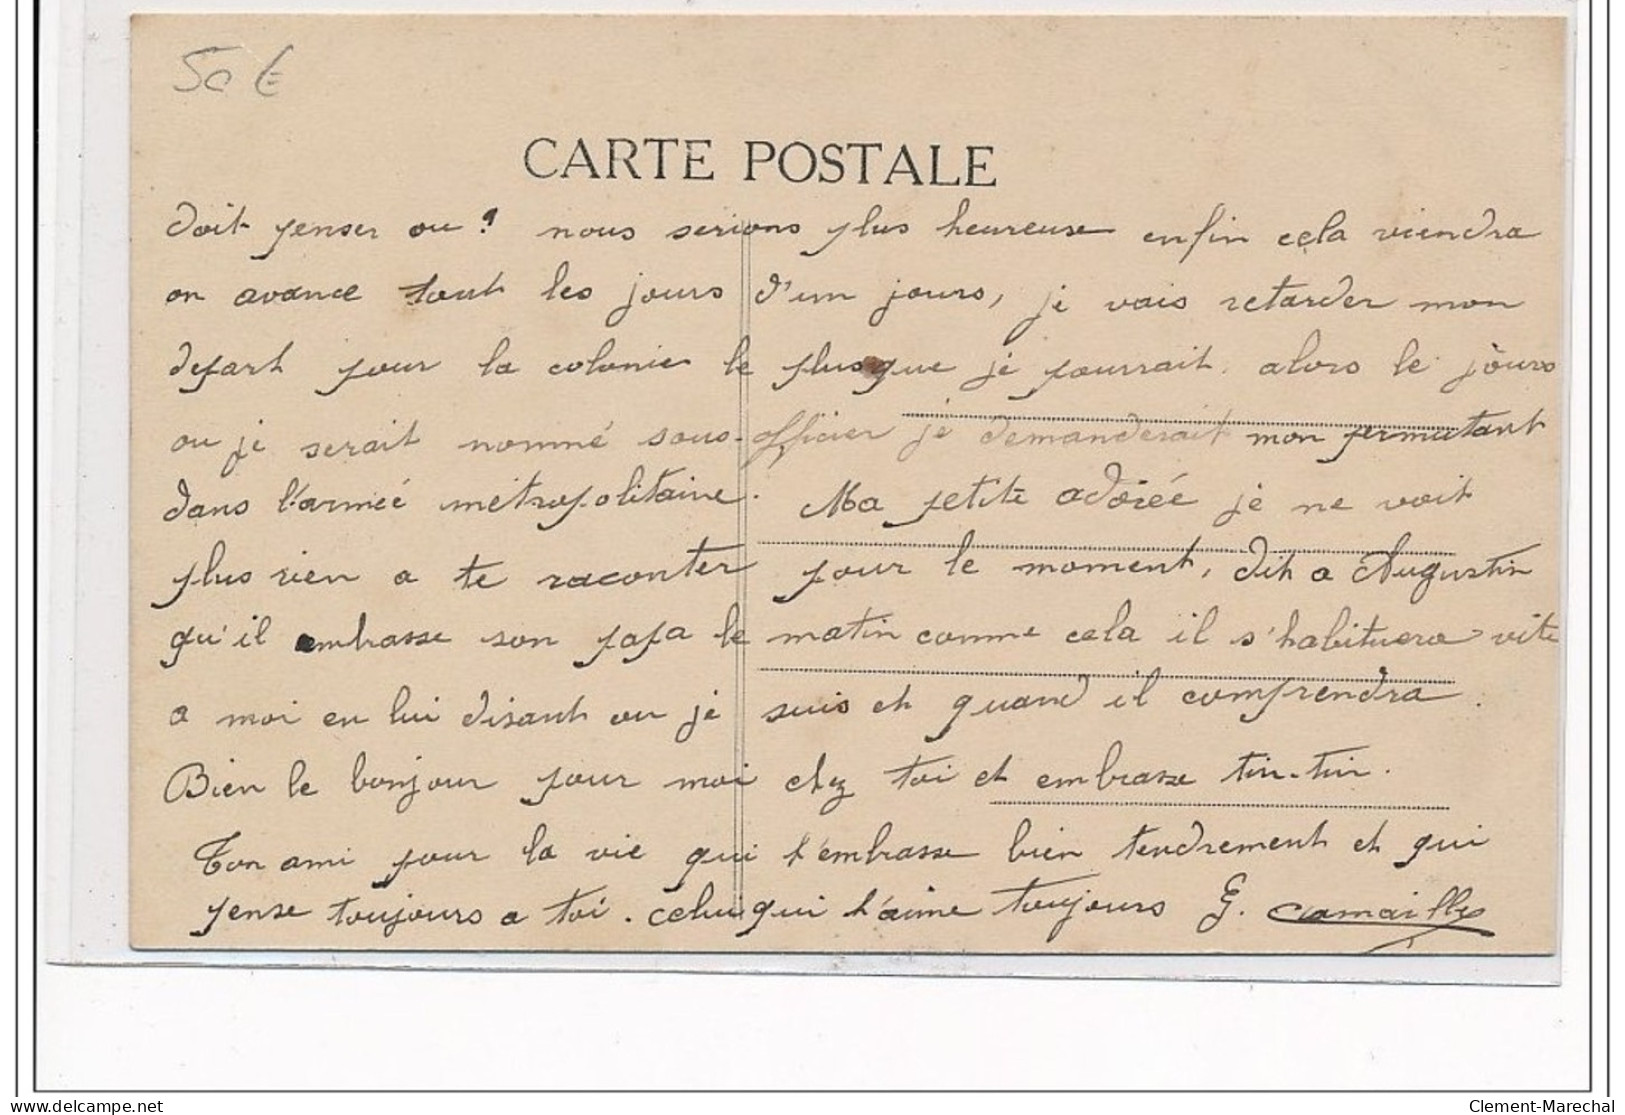 50 €
CARTE POSTALE
doit penser ou? nous serions plus heureuse enfin cela viendra
on avance tout les jours d'un jours, je vais retarder mon
depart pour la colonie le plus que je pourrait. alors le jours
ou je serait nommé sous-officier je demanderait mon permutant
dans l'armée métropolitaine. Ma petite adorée je ne voit
plus rien a te raconter pour le moment, dit a Augustin
qu'il embrasse son papa le matin comme cela il s'habituera vite
a moi en lui disant ou je suis et quand il comprendra.
Bien le bonjour pour moi chez toi et embrasse tin-tin.
Ton ami pour la vie qui t'embrasse bien tendrement et qui
pense toujours a toi. celui qui t'aime toujours G. Camailly
Clement-Marechal